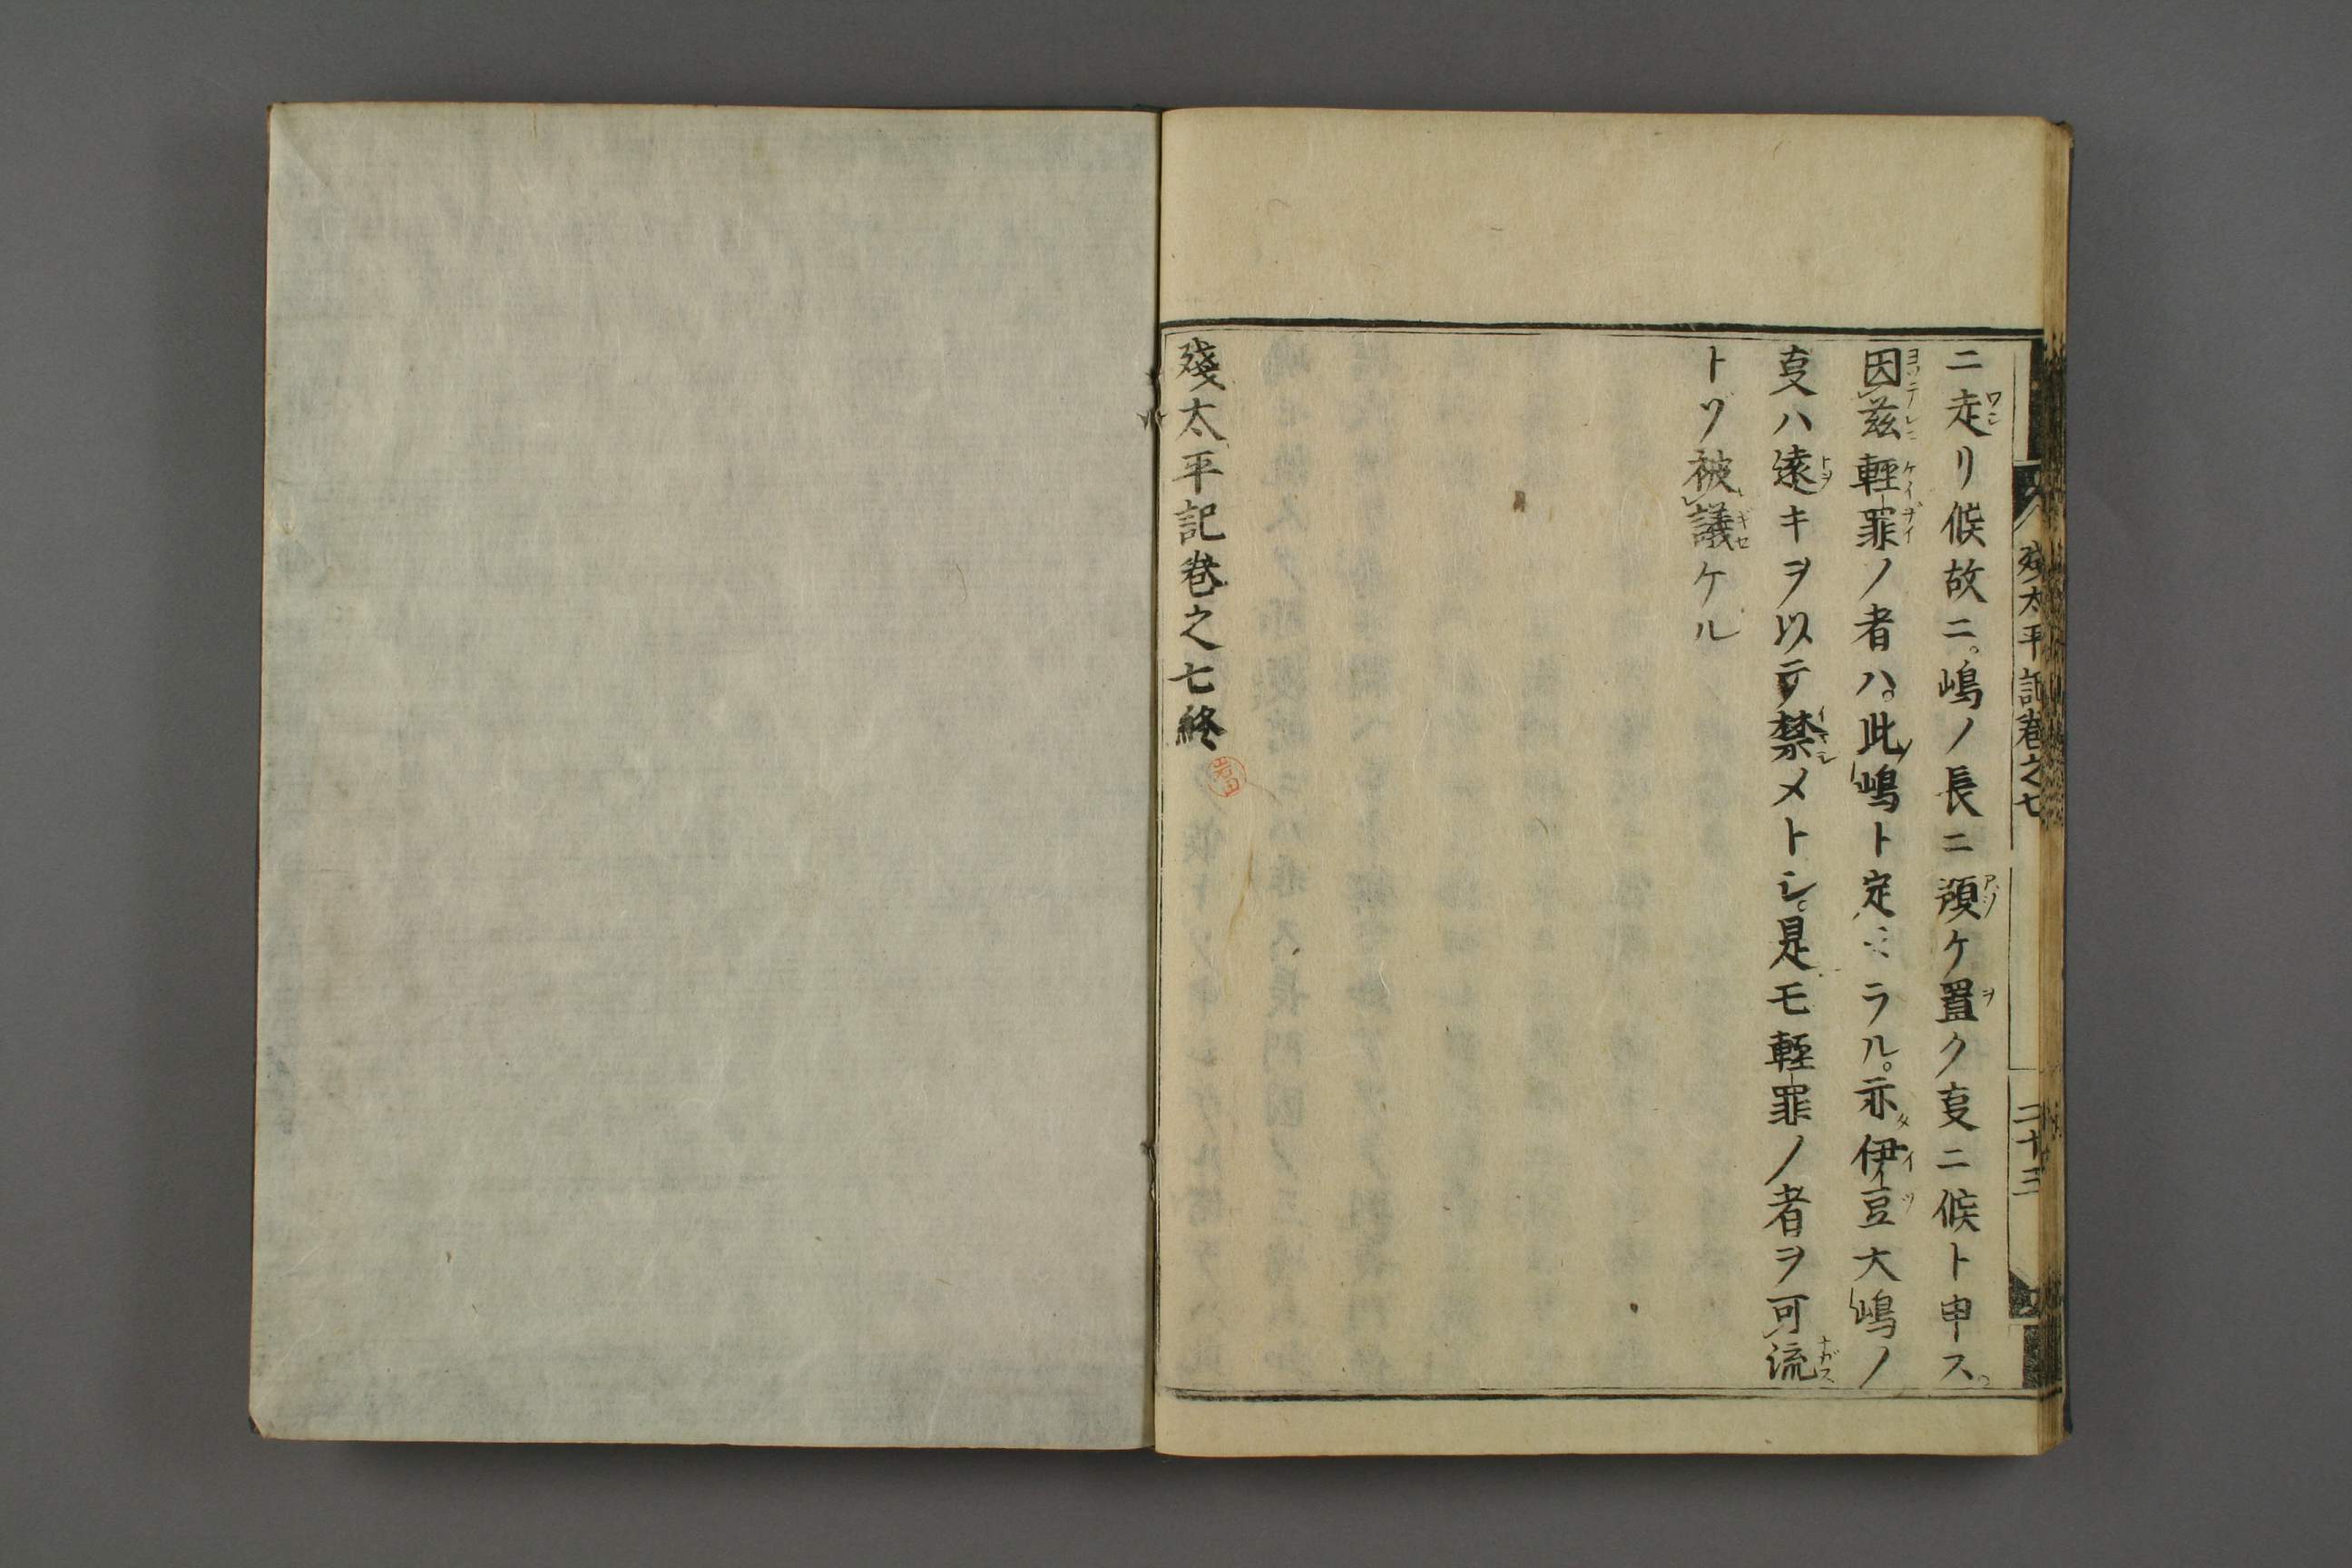 ニ走リ候故ニ。嶋ノ長ニ預ケ置ク叓ニ候ト申ス。
因茲輕罪ノ者ハ。此嶋ト定ミラル。示伊豆大嶋ノ
叓ハ遠キヲ以テ禁メトシ。是モ輕罪ノ者ヲ可流
トゾ被議ケル
殘太平記卷之七終
殘太平記卷之七
二十三